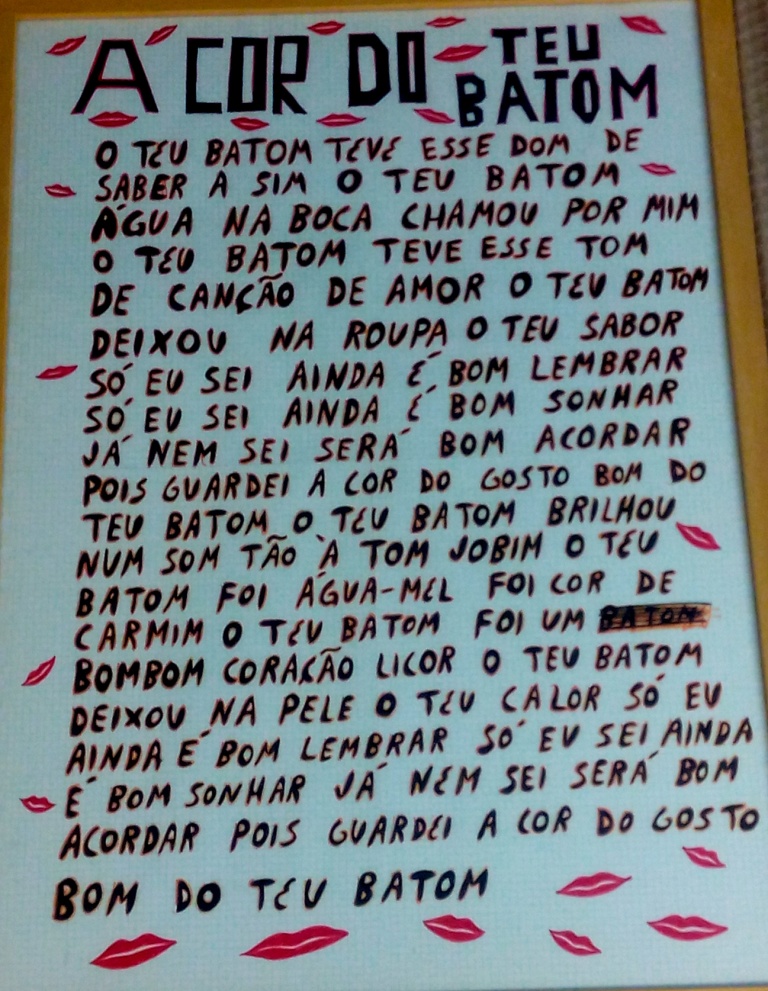 A COR DO TEU BATOM
O TEU BATOM TEVE ESSE DOM DE
SABER A SIM O TEU BATOM
ÁGUA NA BOCA CHAMOU POR MIM
O TEU BATOM TEVE ESSE TOM
DE CANÇÃO DE AMOR O TEU BATOM
DEIXOU NA ROUPA O TEU SABOR
SÓ EU SEI AINDA É BOM LEMBRAR
SÓ EU SEI AINDA É BOM SONHAR
JÁ NEM SEI SERÁ BOM ACORDAR
POIS GUARDEI A COR DO GOSTO BOM DO
TEU BATOM O TEU BATOM BRILHOU
NUM SOM TÃO À TOM JOBIM O TEU
BATOM FOI ÁGUA-MEL FOI COR DE
CARMIM O TEU BATOM FOI UM BATOM
BOMBOM CORAÇÃO LICOR O TEU BATOM
DEIXOU NA PELE O TEU CALOR SÓ EU
AINDA É BOM LEMBRAR SÓ EU SEI AINDA
É BOM SONHAR JÁ NEM SEI SERÁ BOM
ACORDAR POIS GUARDEI A COR DO GOSTO
BOM DO TEU BATOM